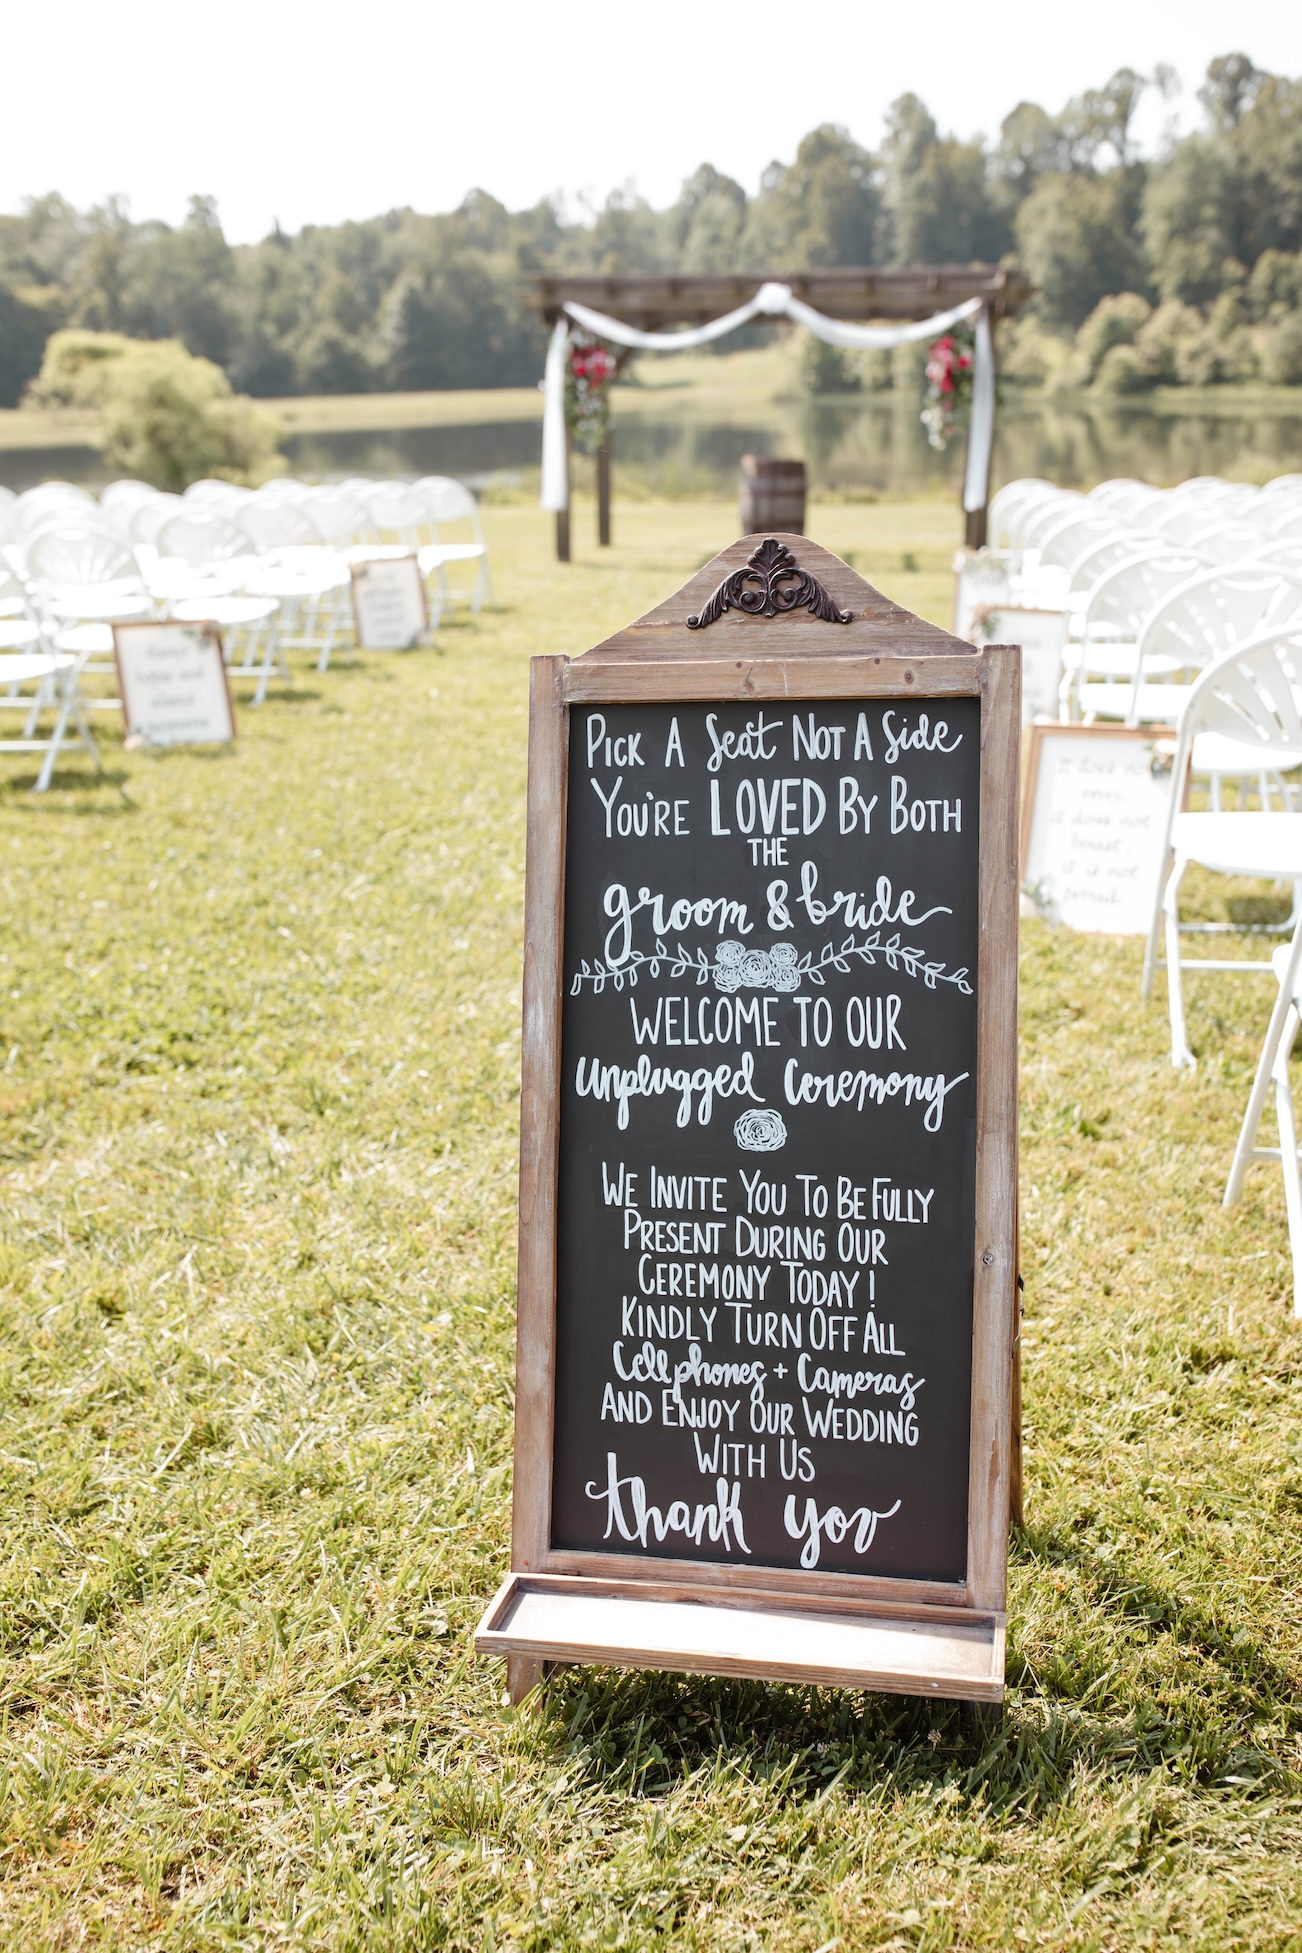 PICK A Seat NOT A Side
YOU'RE LOVED BY BOTH
THE
groom & bride
WELCOME TO OUR
Unplugged Ceremony
WE INVITE YOU TO BE FULLY
PRESENT DURING OUR
CEREMONY TODAY!
KINDLY TURN OFF ALL
Cellphones + Cameras
AND ENJOY OUR WEDDING
WITH US
thank you
It does not
envy,
it does not
boast,
it is not
proud.